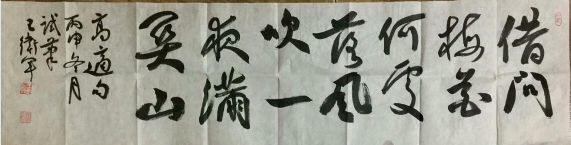 借問
梅花
何處
落風
吹一
夜滿
關山
高適句
丙申冬月
試筆
王衛軍